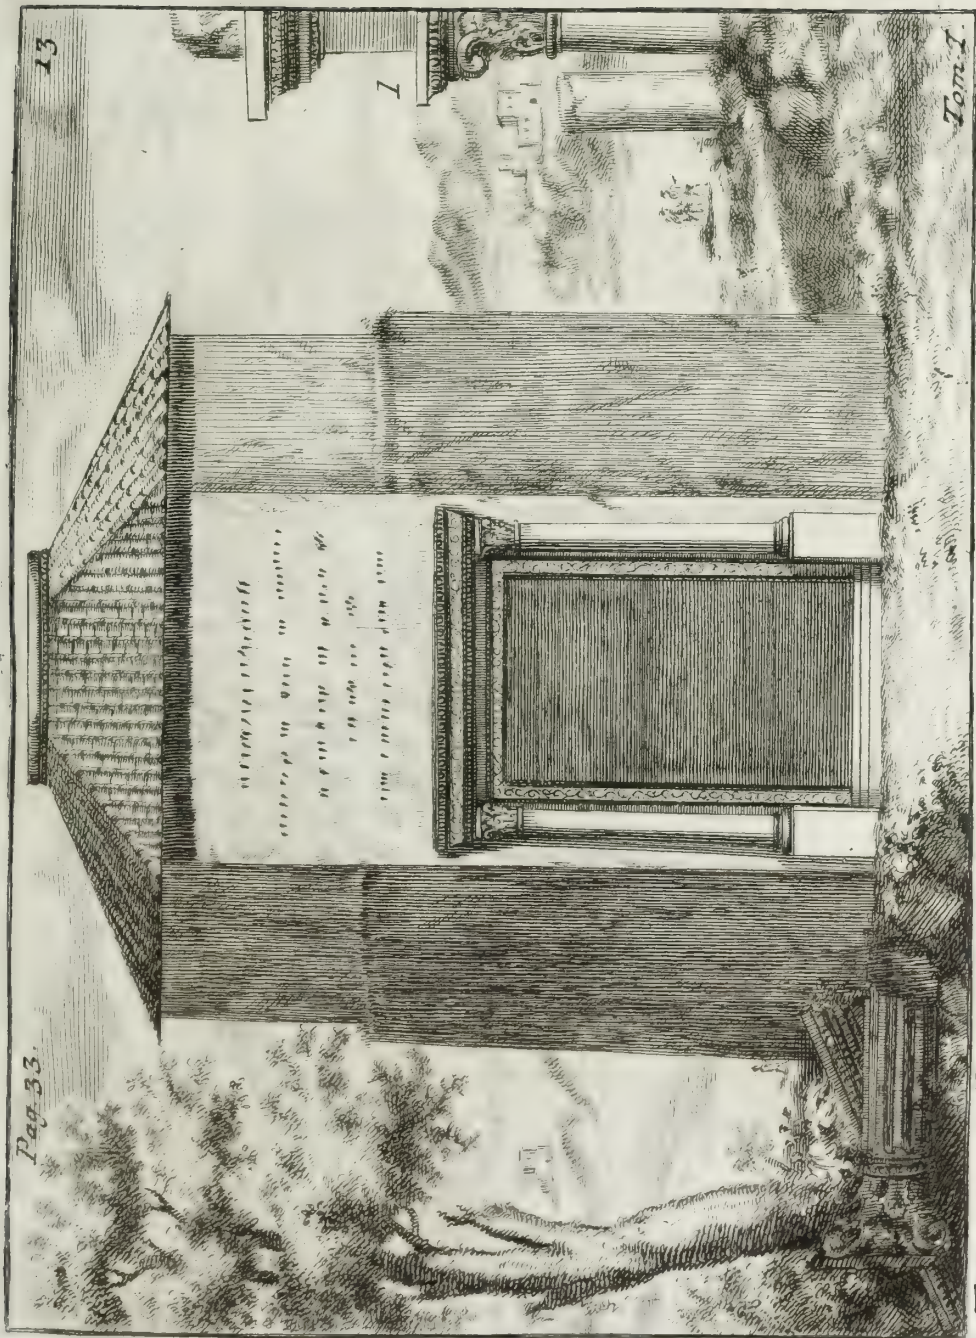 Pag. 33.
13
1
Tom. I